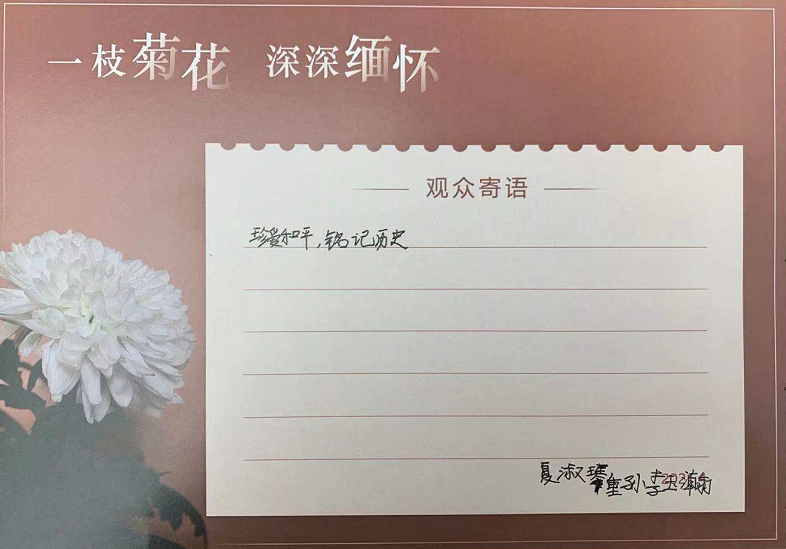 一枝菊花 深深缅怀
观众寄语
珍爱和平,铭记历史
夏淑琴
重孙李玉瀚